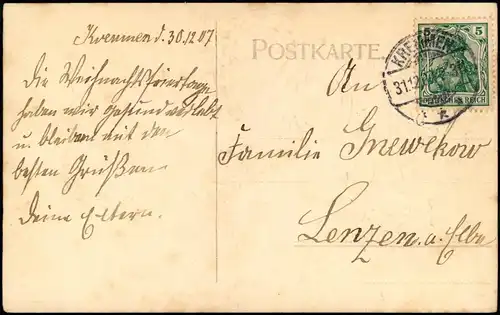 Kremmen d. 30.12.07
Die Weihnachtsfeiertage
haben wir gesund verlebt
u. bleiben mit den
besten Grüßen
Deine Eltern.
POSTKARTE
An
Familie Gnewekow
Lenzen a. Elbe
5
DEUTSCHES REICH
KREMMEN
31.12.07